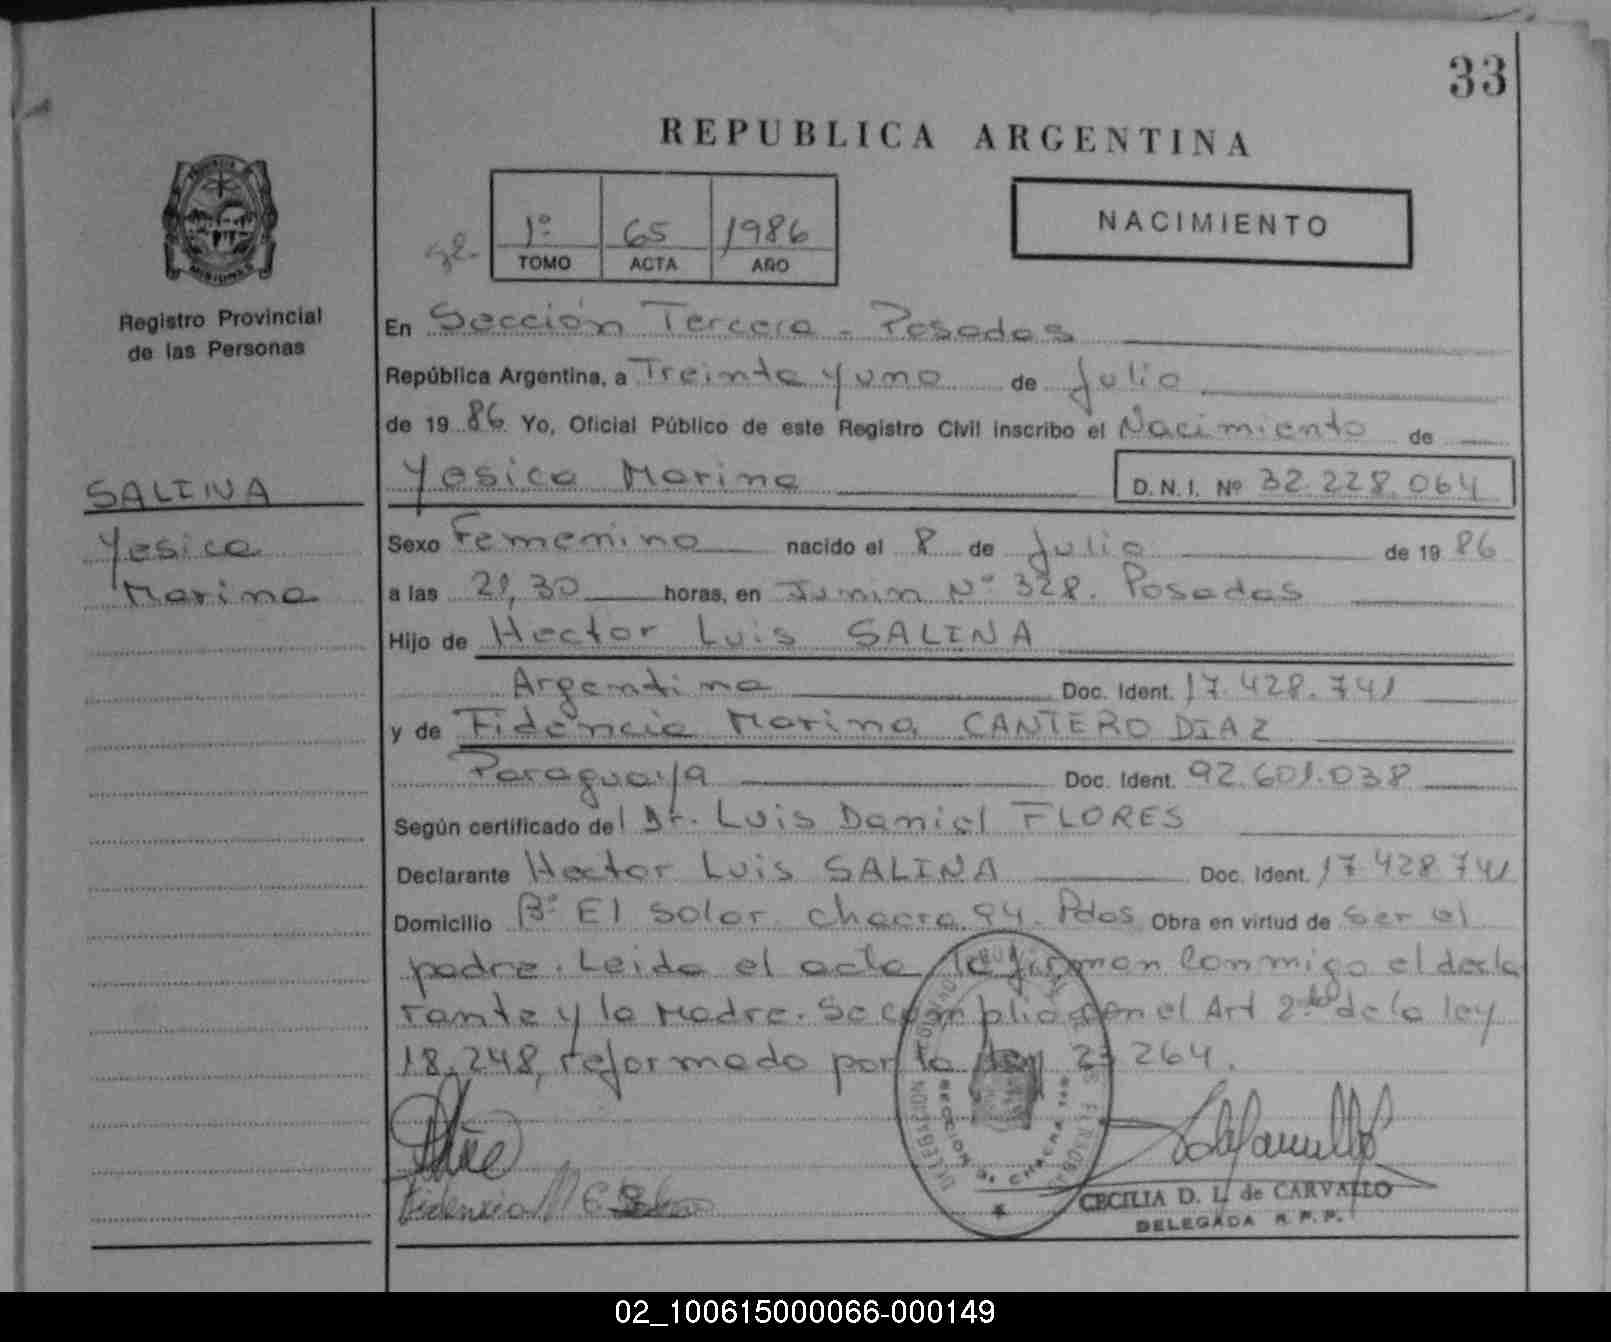 33
REPUBLICA ARGENTINA
1º 65 1986
TOMO ACTA AÑO
NACIMIENTO
MISIONES
Registro Provincial
de las Personas
SALINA
Yesica
Marina
En Sección Tercera - Posadas
República Argentina, a Treinta y uno de Julio
de 19 86 Yo, Oficial Público de este Registro Civil inscribo el Nacimiento de
Yesica Marina D.N.I. Nº 32.228.064
Sexo Femenino nacido el 8 de Julio de 19 86
a las 21,30 horas, en Junin Nº 328. Posadas
Hijo de Hector Luis SALINA
Argentina Doc. Ident. 17.428.741
y de Fidencia Marina CANTERO DIAZ
Paraguaya Doc. Ident. 92.601.038
Según certificado del Dr. Luis Daniel FLORES
Declarante Hector Luis SALINA Doc. Ident. 17.428.741
Domicilio Bº El Solar chacra 94. Pdas Obra en virtud de ser el
padre. Leida el acta la firman conmigo el decla
rante y la Madre. Se cumplió con el Art 2do de la ley
18.248, reformado por la ley 23264.
DELEGACION
SECCION 3a. CHACRA
Fidencia M C
CECILIA D. L. de CARVALLO
DELEGADA R.P.P.
02_100615000066-000149